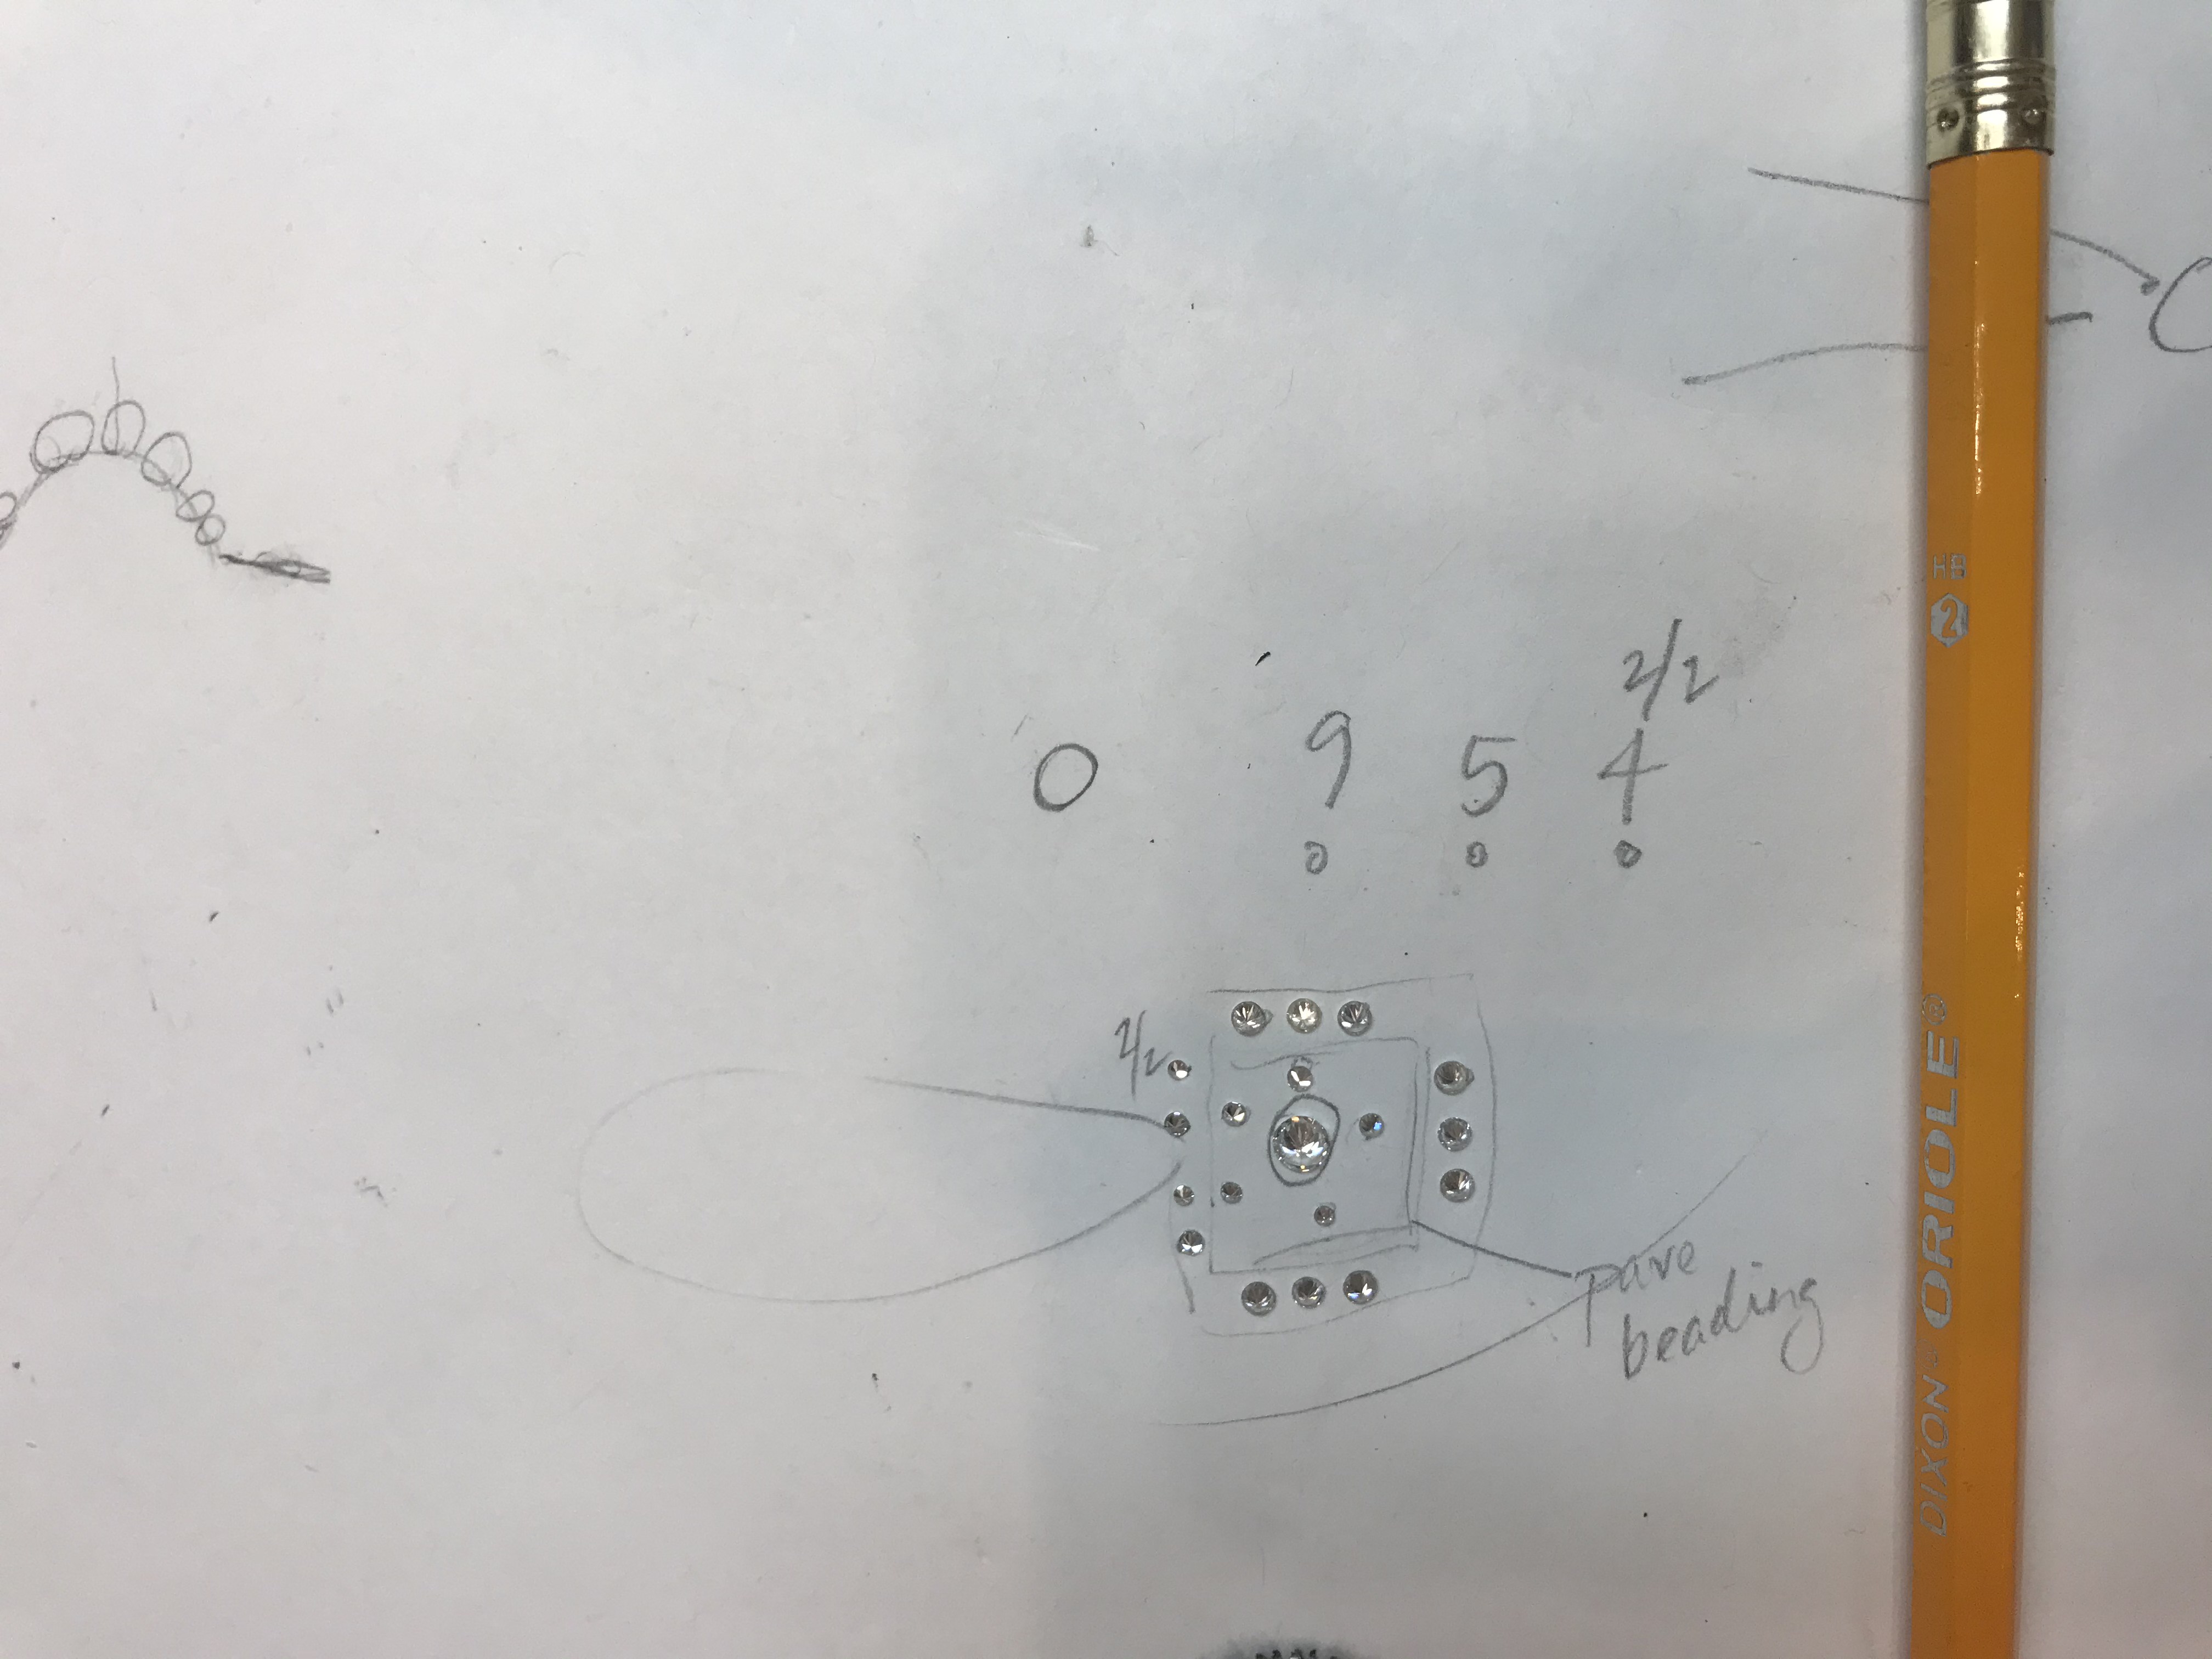 0 9 5 4
pave
beading
DIXON® ORIOLE® 2 HB